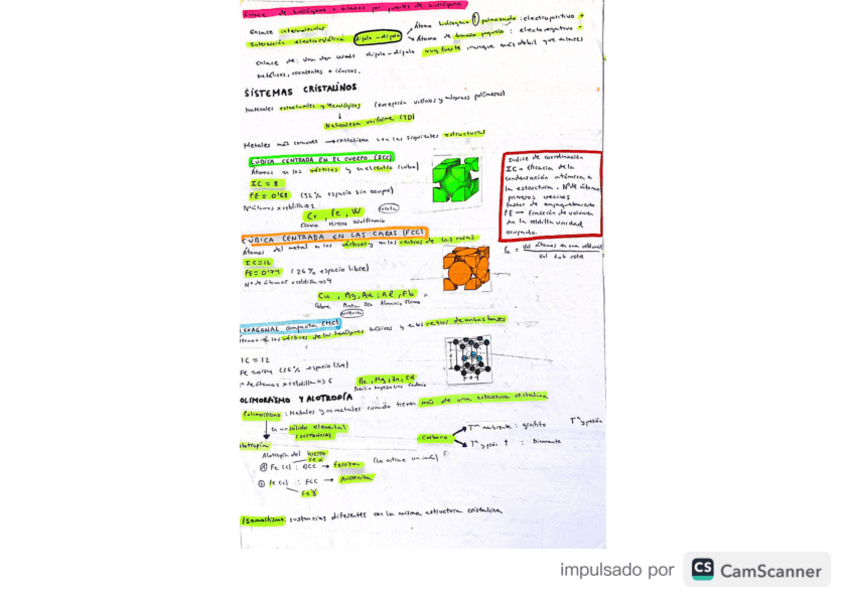 Enlace de hidrógeno o enlaces por puentes de hidrógeno
Enlace intermolecular
Interacción electrostática dipolo-dipolo
Átomo hidrógeno polarizado: electropositivo +
Átomo de tamaño pequeño: electronegativo -
enlace de Van der Waals dipolo-dipolo muy fuerte aunque más débil que enlaces
metálicos, covalentes o iónicos.
SISTEMAS CRISTALINOS
Materiales estructurales y tecnológicos (excepción vidrios y algunos polímeros)
Naturaleza uniforme (3D)
Metales más comunes → cristalizan con las siguientes estructuras
CÚBICA CENTRADA EN EL CUERPO (BCC)
Átomos en los vértices y en el centro (cubo)
IC = 8
FE = 0'68 (32% espacio sin ocupar)
Nº átomos x celdilla = 2
Cr, Fe, W
Cromo Hierro Wolframio
Índice de coordinación
IC → eficacia de la
condensación atómica a
la estructura. Nº de átomos
primeros vecinos
Factor de empaquetamiento
FE → fracción de volumen
de la celdilla unidad
ocupado.
Fe = Vol átomos en una celdilla / Vol celda
CÚBICA CENTRADA EN LAS CARAS (FCC)
Átomos del metal en los vértices y en los centros de las caras
IC = 12
FE = 0'74 (26% espacio libre)
Nº de átomos x celdilla = 4
Cu, Ag, Au, Al, Pb
Cobre Plata Oro Aluminio Plomo
HEXAGONAL compacta (HC)
vértices de los hexágonos básicos y en los centros de ambas bases
IC = 12
Fe = 0'74 (26% espacio libre)
nº de átomos x celdilla = 6
Be, Mg, Zn, Cd
Berilio Magnesio Zinc Cadmio
POLIMORFISMO Y ALOTROPÍA
Polimorfismo: Metales y no metales cuando tienen más de una estructura cristalina
en un sólido elemental
(SUSTANCIAS)
Alotropía
Carbono
Tª ambiente: grafito
Tª y presión ↑ : Diamante
Tª y presión
Alotropía del hierro
Fe α
① Fe (s): BCC → Ferrita
② Fe (s): FCC → Austenita
Fe γ
Isomorfismo: sustancias diferentes con la misma estructura cristalina
impulsado por CS CamScanner